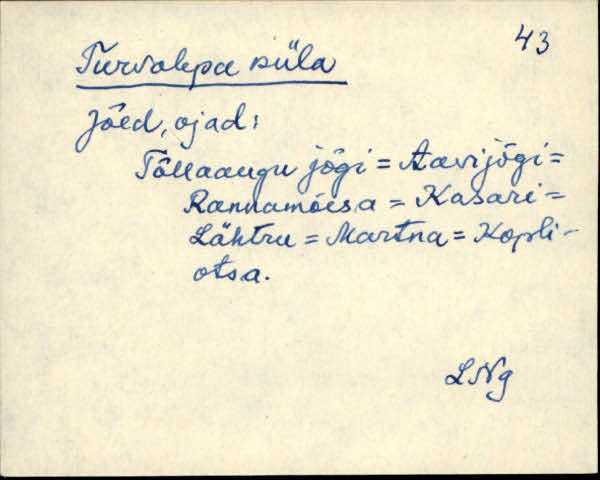 43
Turvalepa küla
Jõed, ojad:
Tõllaaugu jõgi = Aavijõgi =
Rannamõisa = Kasari =
Lähtru = Martna = Kopli-
otsa.
LNg